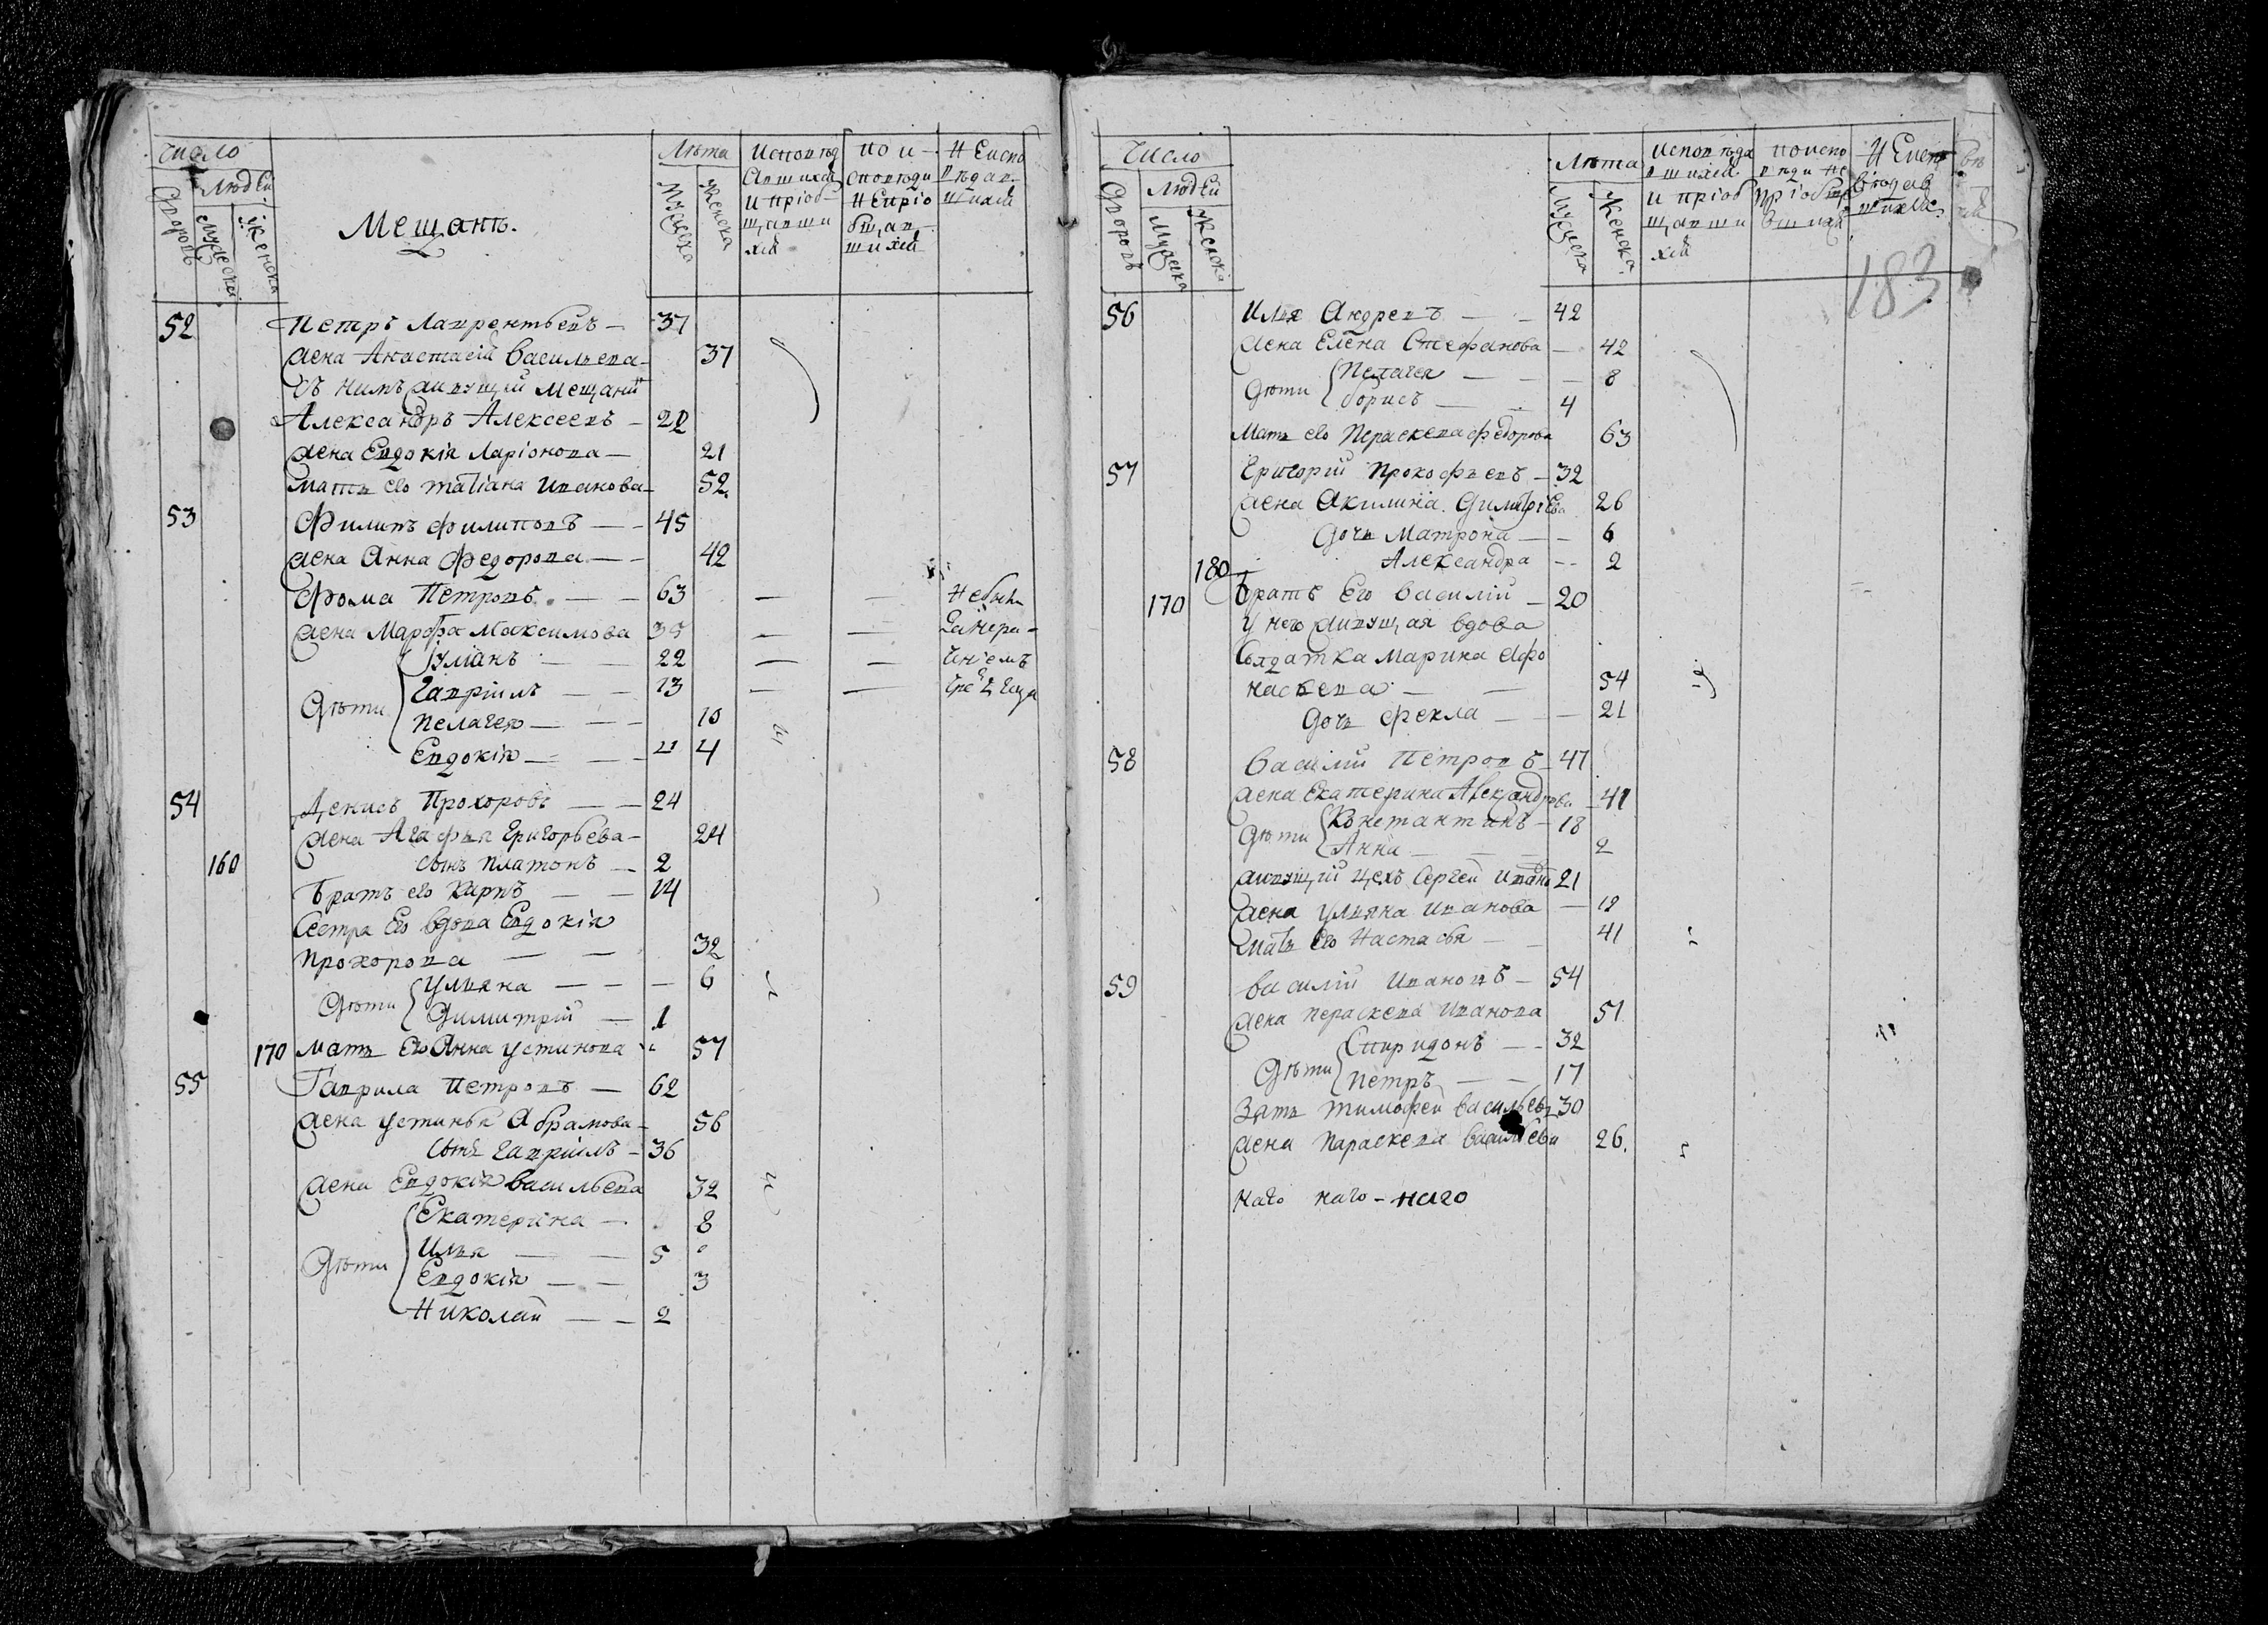 Число
Людей
Дворовъ
Мужеска
Женска
Мещанъ.
Лѣта
Мужеска
Женска
Исповѣд
авшихся
и пріоб
щавши
хся
по и
сповѣди
непріо
бщав
шихся
Неиспо
вѣдав
шихся
52 Петръ Лаврентьевъ — 37
жена Анастасія Васильева — 37
съ нимъ живущій мещанинъ
Александръ Алексеевъ — 22
жена Евдокія Ларіонова — 21
мать его Татіана Иванова — 52
53 Филипъ Филиповъ — 45
жена Анна Федорова — 42
Фома Петровъ — 63 — — Небыли
жена Марфа Максимова 35 — — Занера-
Уліанъ — 22 — — ченіемъ
Дѣти Гавріилъ — 13 — —
Пелагея — 10
Евдокія — 4
54 Денисъ Прохоровъ — 24
жена Агафья Григорьева — 24
160 сынъ Платонъ — 2
Братъ его Карпъ — 14
Сестра его вдова Евдокія
Прохорова — 32
Ульяна — 6
Дѣти Димитрій — 1
170 мать его Анна Устинова 57
55 Гаврила Петровъ — 62
жена Устинья Абрамова — 56
сынъ Гавріилъ — 36
жена Евдокія Васильева 32
Екатерина — 8
Илья — 5
Дѣти
Евдокія — 3
Николай — 2
Число
Людей
Дворовъ
Мужеска
Женска
Лѣта
Мужеска
Женска
исповѣда
вшихся
и пріоб
щавши
хся
поиспо
вѣди не
пріобща
вшихся
Неиспо
вѣдав
шихся
183
56 Илья Андреевъ — 42
жена Елена Стефанова — 42
Пелагея — 8
Дѣти Борисъ — 4
Мать его Пераскева Федорова 63
57 Григорій Прокофьевъ — 32
жена Акилина Димитріева 26
дочь Матрона — 6
180 Александра — 2
170 Братъ его Василій — 20
у него живущая вдова
Солдатка Марина Афо
насьева — 54
дочь Фекла — 21
58 Василій Петровъ — 47
жена Екатерина Александрова — 41
Константинъ — 18
Дѣти Анна — 2
живущій цехъ Сергей Иванъ 21
жена Ульяна Иванова — 19
мать его Настасья — 41
59 Василій Ивановъ — 54
жена Пераскева Иванова 51
Спиридонъ — 32
Дѣти Петръ — 17
Зять Тимофей Васильевъ 30
жена Параскева Васильева 26.
наго наго — наго